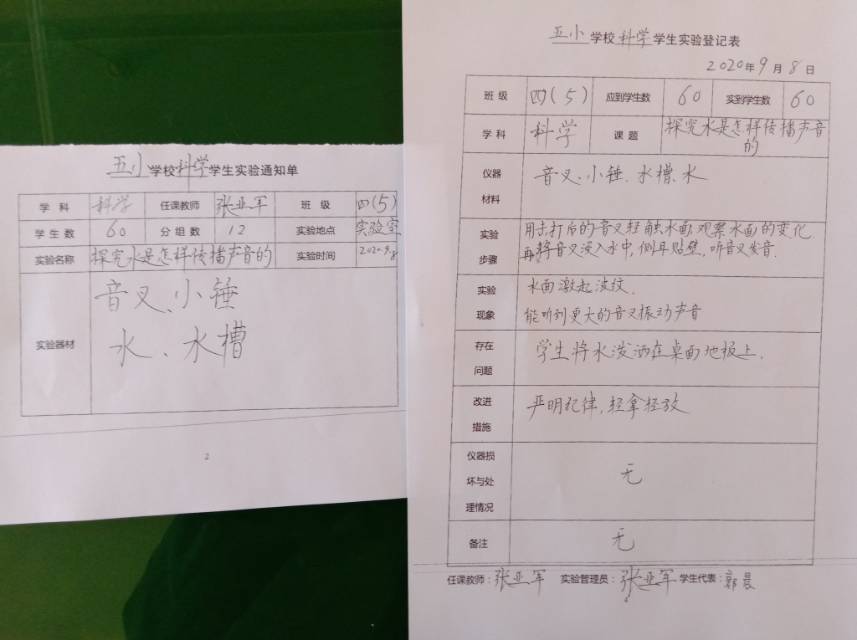 五小学校科学学生实验通知单
学科 科学 任课教师 张亚军 班级 四(5)
学生数 60 分组数 12 实验地点 实验室
实验名称 探究水是怎样传播声音的 实验时间 2020.9.8
音叉、小锤
实验器材
水、水槽
2
五小学校科学学生实验登记表
2020年9月8日
班级 四(5) 应到学生数 60 实到学生数 60
学科 科学 课题 探究水是怎样传播声音
的
仪器 音叉、小锤、水槽、水
材料
实验 用击打后的音叉轻触水面,观察水面的变化
步骤 再将音叉深入水中,侧耳贴壁,听音叉发音.
实验 水面激起波纹.
现象 能听到更大的音叉振动声音
存在 学生将水泼洒在桌面地板上.
问题
改进 严明纪律,轻拿轻放
措施
仪器损
坏与处 无
理情况
备注 无
任课教师:张亚军 实验管理员:张亚军 学生代表:郭晨